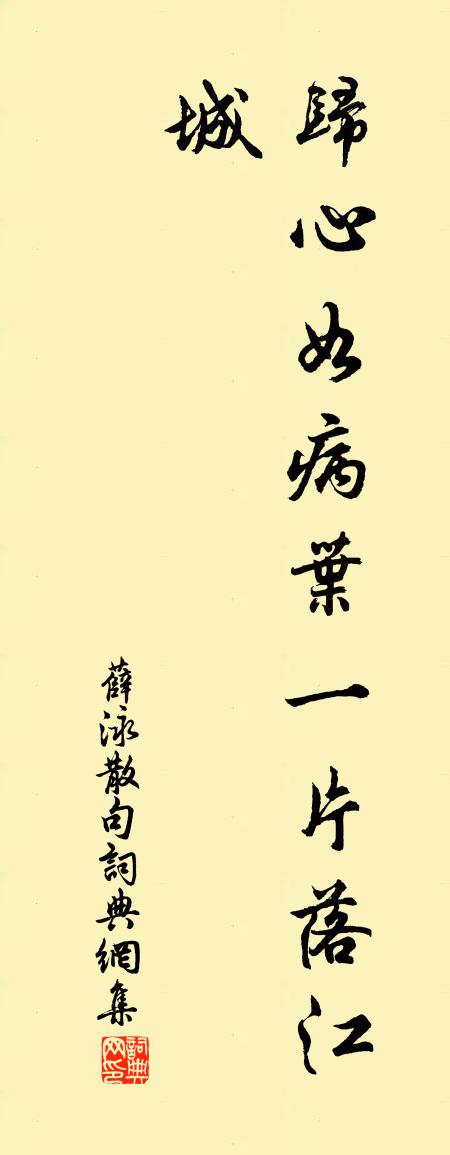 歸心如病葉一片落江
城
薛泳散句詞典網集
詞典网印